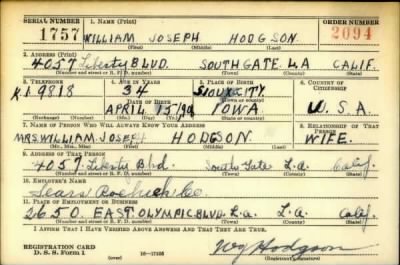 SERIAL NUMBER 1. NAME (Print) ORDER NUMBER
1757 WILLIAM JOSEPH HODGSON 2094
(First) (Middle) (Last)
2. ADDRESS (Print)
4057 Liberty BLVD. SOUTHGATE LA CALIF.
(Number and street or R. F. D. number) (Town) (County) (State)
3. TELEPHONE 4. AGE IN YEARS 5. PLACE OF BIRTH 6. COUNTRY OF CITIZENSHIP
34 SIOUX CITY.
KI. 9818 DATE OF BIRTH (Town or county)
APRIL 15 IOWA U.S.A
(Exchange) (Number) (Mo.) (Day) (Yr.) (State or country)
7. NAME OF PERSON WHO WILL ALWAYS KNOW YOUR ADDRESS 8. RELATIONSHIP OF THAT PERSON
MRS. WILLIAM JOSEPH HODGSON WIFE.
(Mr., Mrs., Miss) (First) (Middle) (Last)
9. ADDRESS OF THAT PERSON
4057 Liberty Blvd. South Gate L.a. Calif.
(Number and street or R. F. D. number) (Town) (County) (State)
10. EMPLOYER'S NAME
Sears Roebuck Co
11. PLACE OF EMPLOYMENT OR BUSINESS
2650 EAST OLYMPIC BLVD. L.a. L.a. Calif.
(Number and street or R. F. D. number) (Town) (County) (State)
I AFFIRM THAT I HAVE VERIFIED ABOVE ANSWERS AND THAT THEY ARE TRUE.
REGISTRATION CARD
D. S. S. Form 1 (over) Wj Hodgson
(Registrant's signature)